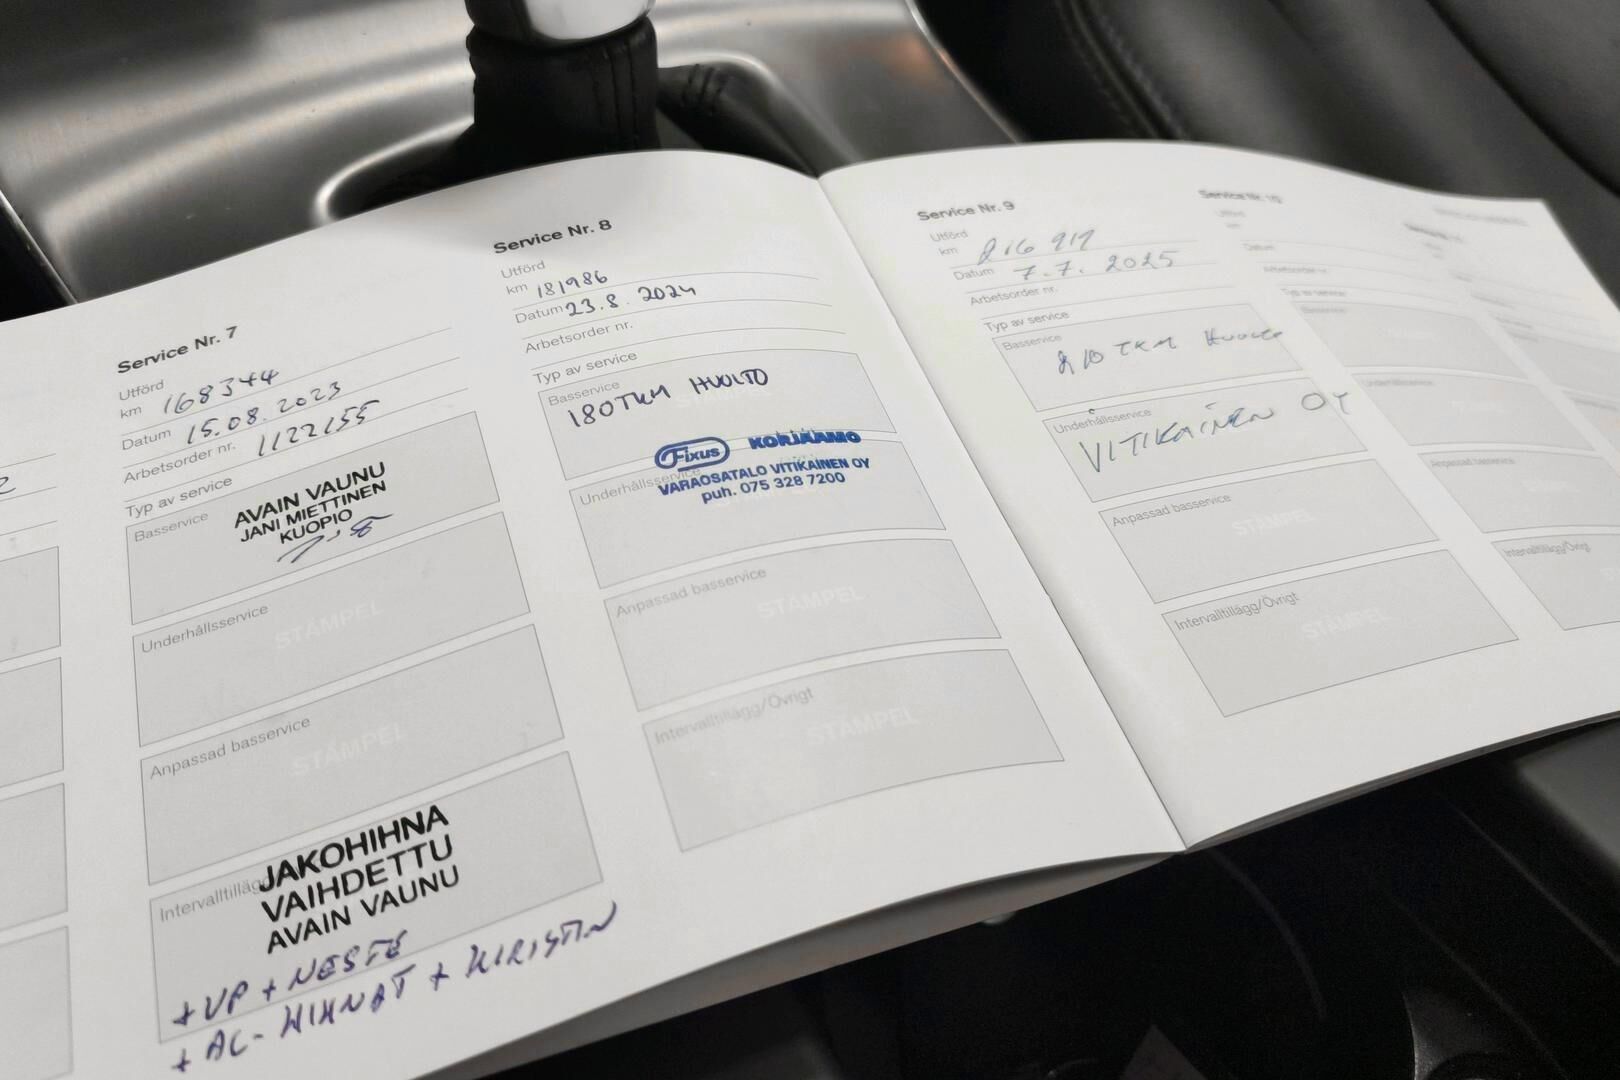 Service Nr. 7
Utförd
km 168344
Datum 15.08.2023
Arbetsorder nr. 1122155
Typ av service
Basservice
AVAIN VAUNU
JANI MIETTINEN
KUOPIO
Underhållsservice
STÄMPEL
Anpassad basservice
STÄMPEL
Intervalltillägg
JAKOHIHNA
VAIHDETTU
AVAIN VAUNU
+ VP + NESTE
+ AC-HIHNAT + KIRISTIN
Service Nr. 8
Utförd
km 181986
Datum 23.8. 2024
Arbetsorder nr.
Typ av service
Basservice
180TKM HUOLTO
Fixus KORJAAMO
Underhållsservice
VARAOSATALO VITIKAINEN OY
puh. 075 328 7200
Anpassad basservice
STÄMPEL
Intervalltillägg/Övrigt
STÄMPEL
Service Nr. 9
Utförd
km 216 919
Datum 7.7. 2025
Arbetsorder nr.
Typ av service
Basservice
210 TKM Huolto
Underhållsservice
VITIKAINEN OY
Anpassad basservice
STÄMPEL
Intervalltillägg/Övrigt
STÄMPEL
Service Nr. 10
Utförd
km
Datum
Arbetsorder nr.
Typ av service
Basservice
Underhållsservice
Anpassad basservice
Intervalltillägg/Övrigt